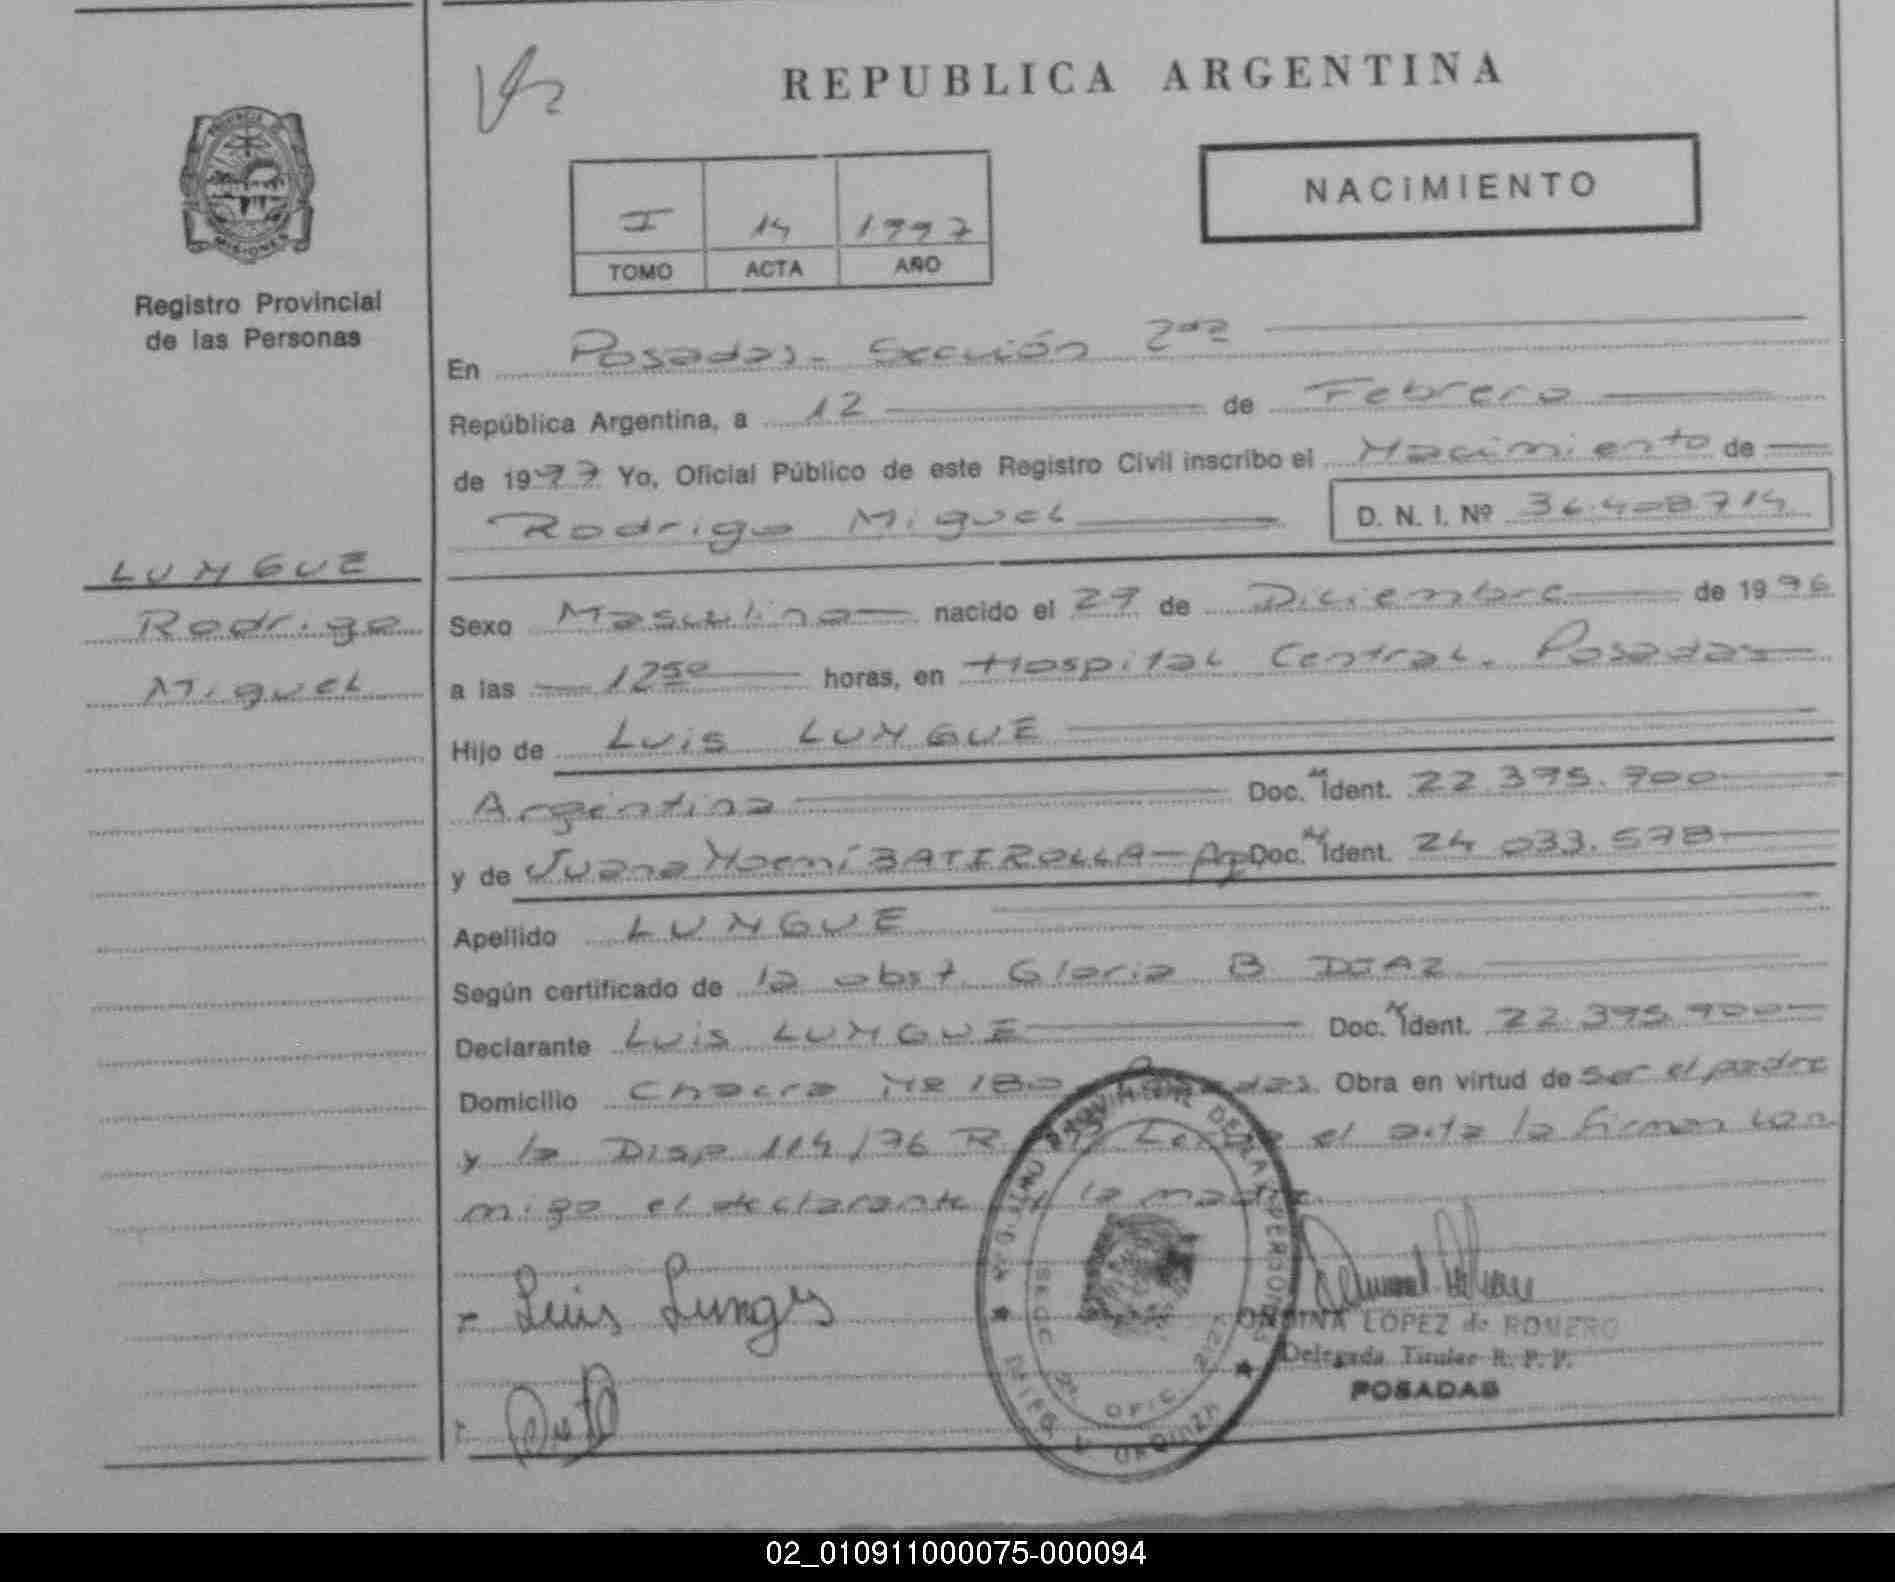 REPUBLICA ARGENTINA
PROVINCIA DE MISIONES
Registro Provincial
de las Personas
NACIMIENTO
I 14 1997
TOMO ACTA AÑO
En Posadas - Sección 2da
República Argentina, a 12 de Febrero
de 1997 Yo, Oficial Público de este Registro Civil inscribo el Nacimiento de
Rodrigo Miguel D. N. I. Nº 36.408.714
LUNGUE
Rodrigo
Miguel
Sexo Masculino nacido el 29 de Diciembre de 1996
a las 12 50 horas, en Hospital Central. Posadas
Hijo de Luis LUNGUE
Argentina Doc. Ident. 22.395.900
y de Juana Noemí BATIROLLA - Arg Doc. Ident. 24.033.578
Apellido LUNGUE
Según certificado de la obst. Gloria B DIAZ
Declarante Luis LUNGUE Doc. Ident. 22.395.900
Domicilio Chacra Nº 180 Posadas. Obra en virtud de ser el padre
y la Disp 114/96 R. el acta la firman con
migo el declarante y la madre
Luis Lunge
ONDINA LOPEZ de ROMERO
Delegada Titular R. P. P.
POSADAS
02_010911000075-000094